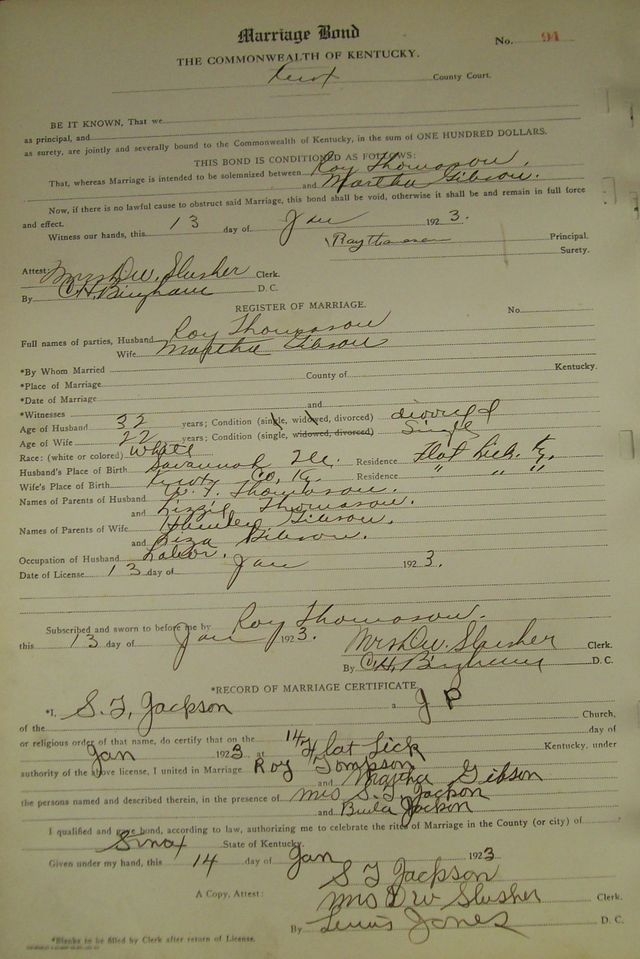 Marriage Bond
No. 94
THE COMMONWEALTH OF KENTUCKY.
Knox County Court.
BE IT KNOWN, That we
as principal, and
as surety, are jointly and severally bound to the Commonwealth of Kentucky, in the sum of ONE HUNDRED DOLLARS.
THIS BOND IS CONDITIONED AS FOLLOWS:
That, whereas Marriage is intended to be solemnized between Roy Thomason,
and Martha Gibson.
Now, if there is no lawful cause to obstruct said Marriage, this bond shall be void, otherwise it shall be and remain in full force
and effect.
Witness our hands, this 13 day of Jan 1923.
Principal.
Surety.
Attest: Mrs D.W. Slusher Clerk.
By C.H. Bingham D. C.
REGISTER OF MARRIAGE.
No.
Full names of parties, Husband Roy Thomason
Wife Martha Gibson
*By Whom Married
*Place of Marriage County of Kentucky.
*Date of Marriage
*Witnesses and
Age of Husband 32 years; Condition (single, widowed, divorced) divorced
Age of Wife 22 years; Condition (single, widowed, divorced) Single
Race: (white or colored) White
Husband's Place of Birth Savannah, Ill. Residence Flat Lick, Ky.
Wife's Place of Birth Knox Co, Ky. Residence " " "
Names of Parents of Husband W. T. Thomason.
and Lizzie Thomason.
Names of Parents of Wife Gibson.
and Liza Gibson.
Occupation of Husband Labor.
Date of License 13 day of Jan 1923.
Subscribed and sworn to before me by Roy Thomason.
this 13 day of Jan 1923. Mrs D.W. Slusher Clerk.
By C.H. Bingham D. C.
*RECORD OF MARRIAGE CERTIFICATE
*I, S. T. Jackson a J P
of the Church,
or religious order of that name, do certify that on the 14 day of
Jan 1923 at Flat Lick Kentucky, under
authority of the above license, I united in Marriage Roy Tompson
and Martha Gibson
the persons named and described therein, in the presence of Mrs S. T. Jackson
and Beula Jackson
I qualified and gave bond, according to law, authorizing me to celebrate the rites of Marriage in the County (or city) of
State of Kentucky.
Given under my hand, this 14 day of Jan 1923
S T Jackson
A Copy, Attest: Mrs D W Slusher Clerk.
By Lewis Jones D. C.
*Blanks to be filled by Clerk after return of License.